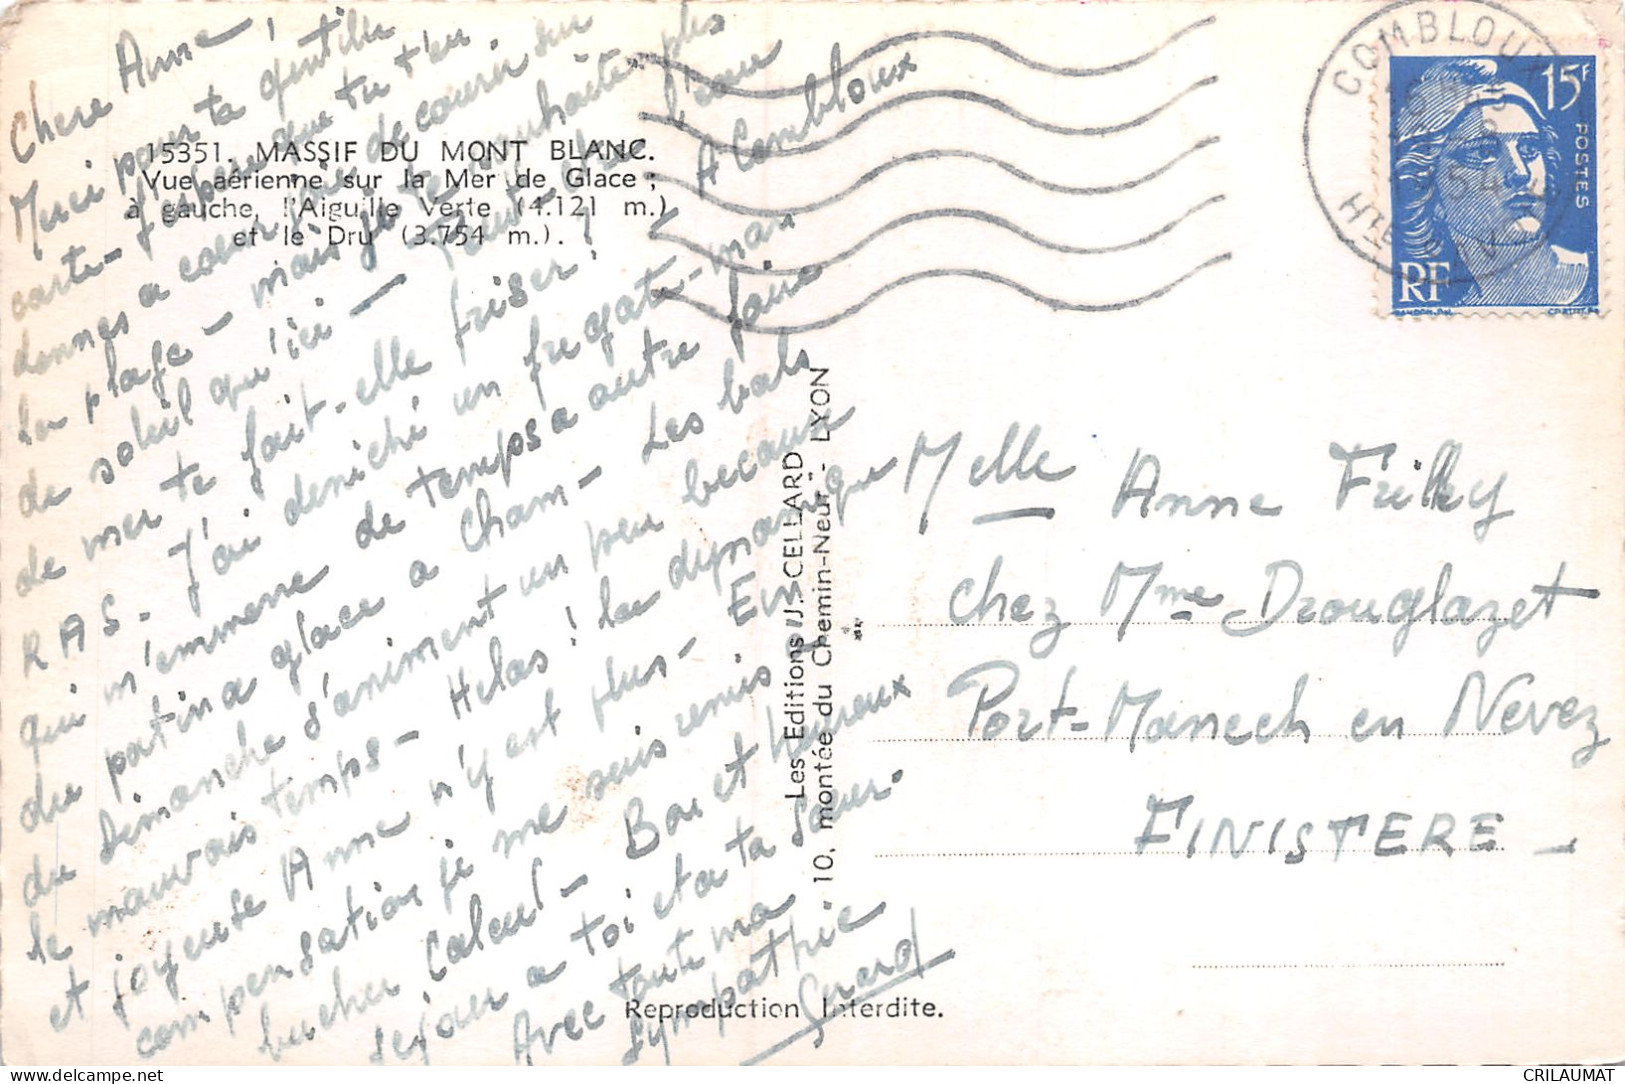 Chere Anne,
Merci pour ta gentille
carte - J'espere que tu t'en
donnes a coeur joie de courir sur
la plage - mais je te souhaite plus
de soleil qu'ici - Peut-être l'eau
de mer te fait-elle friser ? A Combloux
RAS - J'ai deniché un fregate-man
qui m'emmene de temps a autre faire
du patin a glace a Cham - Les bals
du Dimanche s'animent un peu because
le mauvais temps - Helas ! la dynamique
et joyeuse Anne n'y est plus - En
compensation je me suis remis a
bucher Calcul - Bon et heureux
sejour a toi et a ta soeur.
Avec toute ma
sympathie
Gerard
15351. MASSIF DU MONT BLANC.
Vue aérienne sur la Mer de Glace ;
à gauche, l'Aiguille Verte (4.121 m.)
et le Dru (3.754 m.).
Les Editions J. CELLARD
10, montée du Chemin-Neuf - LYON
Reproduction Interdite.
COMBLOUX
HTE SAVOIE
15F
POSTES
RF
Melle Anne Frilley
chez Mme Drouglazet
Port-Manech en Nevez
FINISTERE -
CRILAUMAT